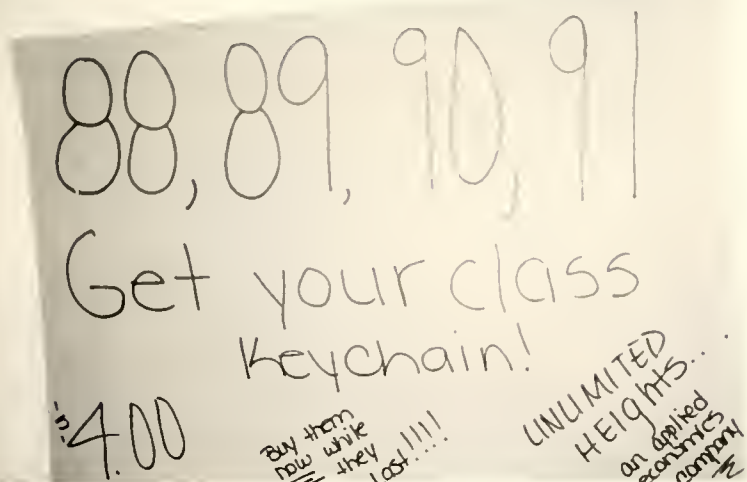 88, 89, 90, 91
Get your class
Keychain!
4.00
Buy them
now while
they
last!!!!
UNLIMITED
HEIGHTS...
an applied
economics
company